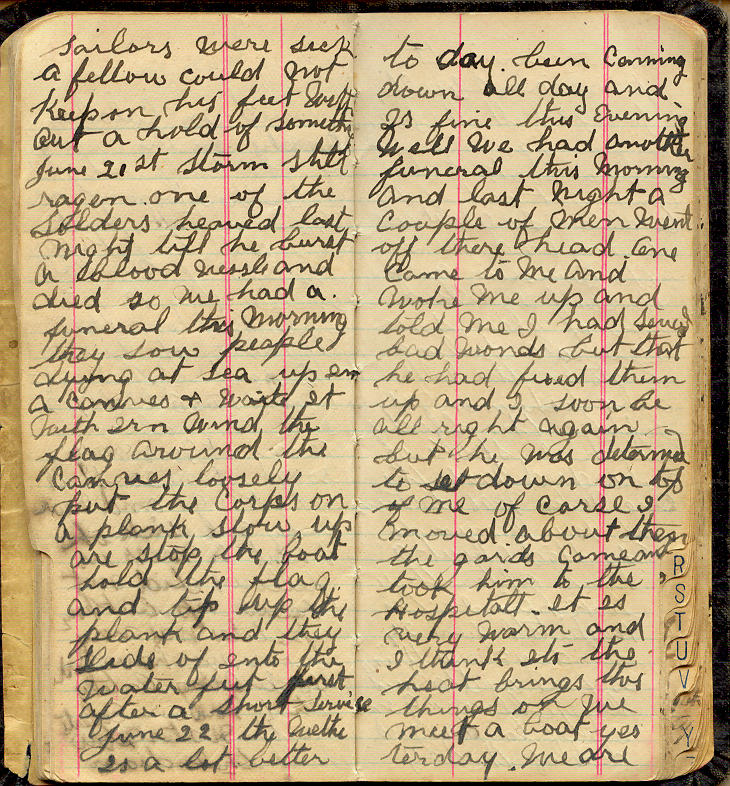 sailors were sick
a fellow could not
keep on his feet with
out a hold of somethi
June 21st Storm still
ragen. one of the
Solders heaved last
Night till he burst
a blood vessle and
died so we had a.
funeral this Morning
they sow people
dying at sea up en
a canves + waite it
with irn Wind the
flag around the
Canves loosely
put the Corps on
a plank slow up
are stop the boat
hold the flag
and tip up the
plank and they
slide of into the
water feet first
after a short servise
June 22 the wethe
is a lot better
to day. been Conning
down all day and
Is fine this Evening
Well We had another
funeral this Morning
and last Night a
Couple of Men Went
off there head. one
Came to Me and
Woke Me up and
told Me I had
bad Wonds but that
he had fixed them
up and I soon be
all right again
but he Was
to set down on top
of me of carse I
moved about then
the gards Came and
took him to the
Hospitall. it is
very Warm and
I think its the
heat brings this
things on We
meet a boat yes
terday. We are
R
S
T
U
V
Y